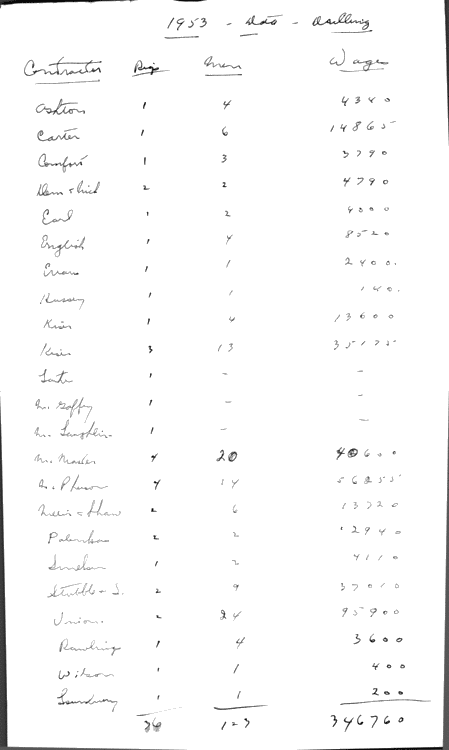 1953 - Data - Drilling
Contractor Rigs Men Wages
Ashton 1 4 4340
Carter 1 6 14865
Comfort 1 3 3790
2 2 4790
Earl 1 2
English 1 4 8520
Evans 1 1 2400.
Hussey 1 1 140.
1 4 13600
3 13 35175
1 - -
Mc Goffey 1 - -
Mc Laughlin 1 - -
Mc Master 4 20 40600
Mc Pherson 4 14 56255
& Shaw 2 6 13720
2 2 12940
1 2 4110
2 9 37010
Union. 2 24 95900
Rawling 1 4 3600
Wilson 1 1 400
1 1 200
36 123 346760